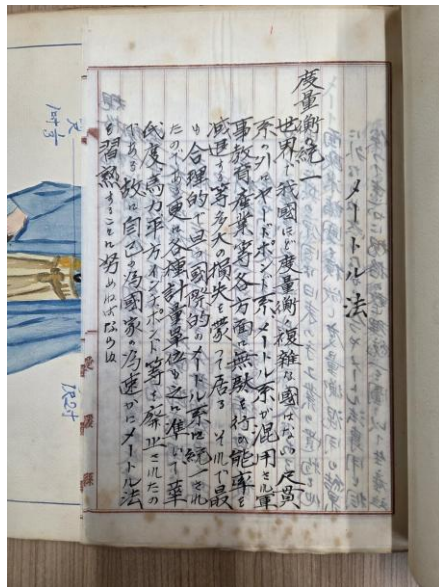 メートル法
度量衡の統一
世界で我國ほど度量衡の複雜な國はない、尺貫
系の外にヤードポンド系メートル系が混用され軍
事教育産業等各方面に無駄を行ひ能率を
低進する等多大の損失を蒙って居る それで最
も合理的で且つ國際的のメートル系に統一され
たのである更に各種計量單位も之に準じて
馬力平方インチポンド等も廢止されたの
である故に自己の為國家の為速かにメートル法
を習熟することに努めねばならぬ